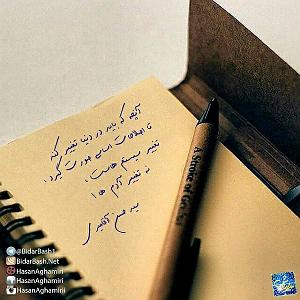 آنچه که باید در دنیا تغییر کند
تا اصلاحات اساسی صورت گیرد،
تغییر سیستم هاست!
نه تغییر آدم ها!
A Stroke of
@BidarBash1
@BidarBash.Net
HasanAghamiri
HasanAghamiri
HasanAghamiri